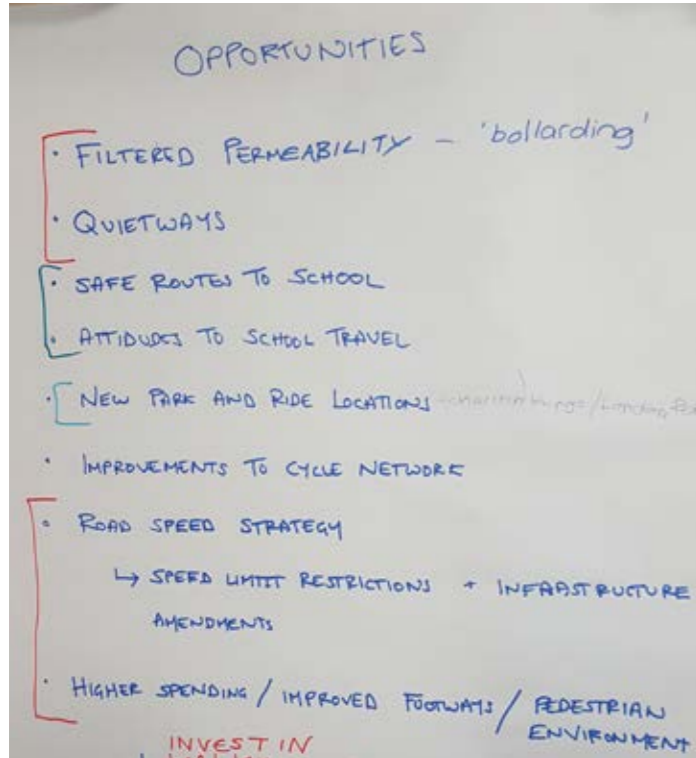 OPPORTUNITIES
· FILTERED PERMEABILITY – 'bollarding'
· QUIETWAYS
· SAFE ROUTES TO SCHOOL
· ATTIDUDES TO SCHOOL TRAVEL
· NEW PARK AND RIDE LOCATIONS
· IMPROVEMENTS TO CYCLE NETWORK
· ROAD SPEED STRATEGY
↳ SPEED LIMIT RESTRICTIONS + INFRASTRUCTURE
AMENDMENTS
· HIGHER SPENDING / IMPROVED FOOTWAYS / PEDESTRIAN
ENVIRONMENT
INVEST IN